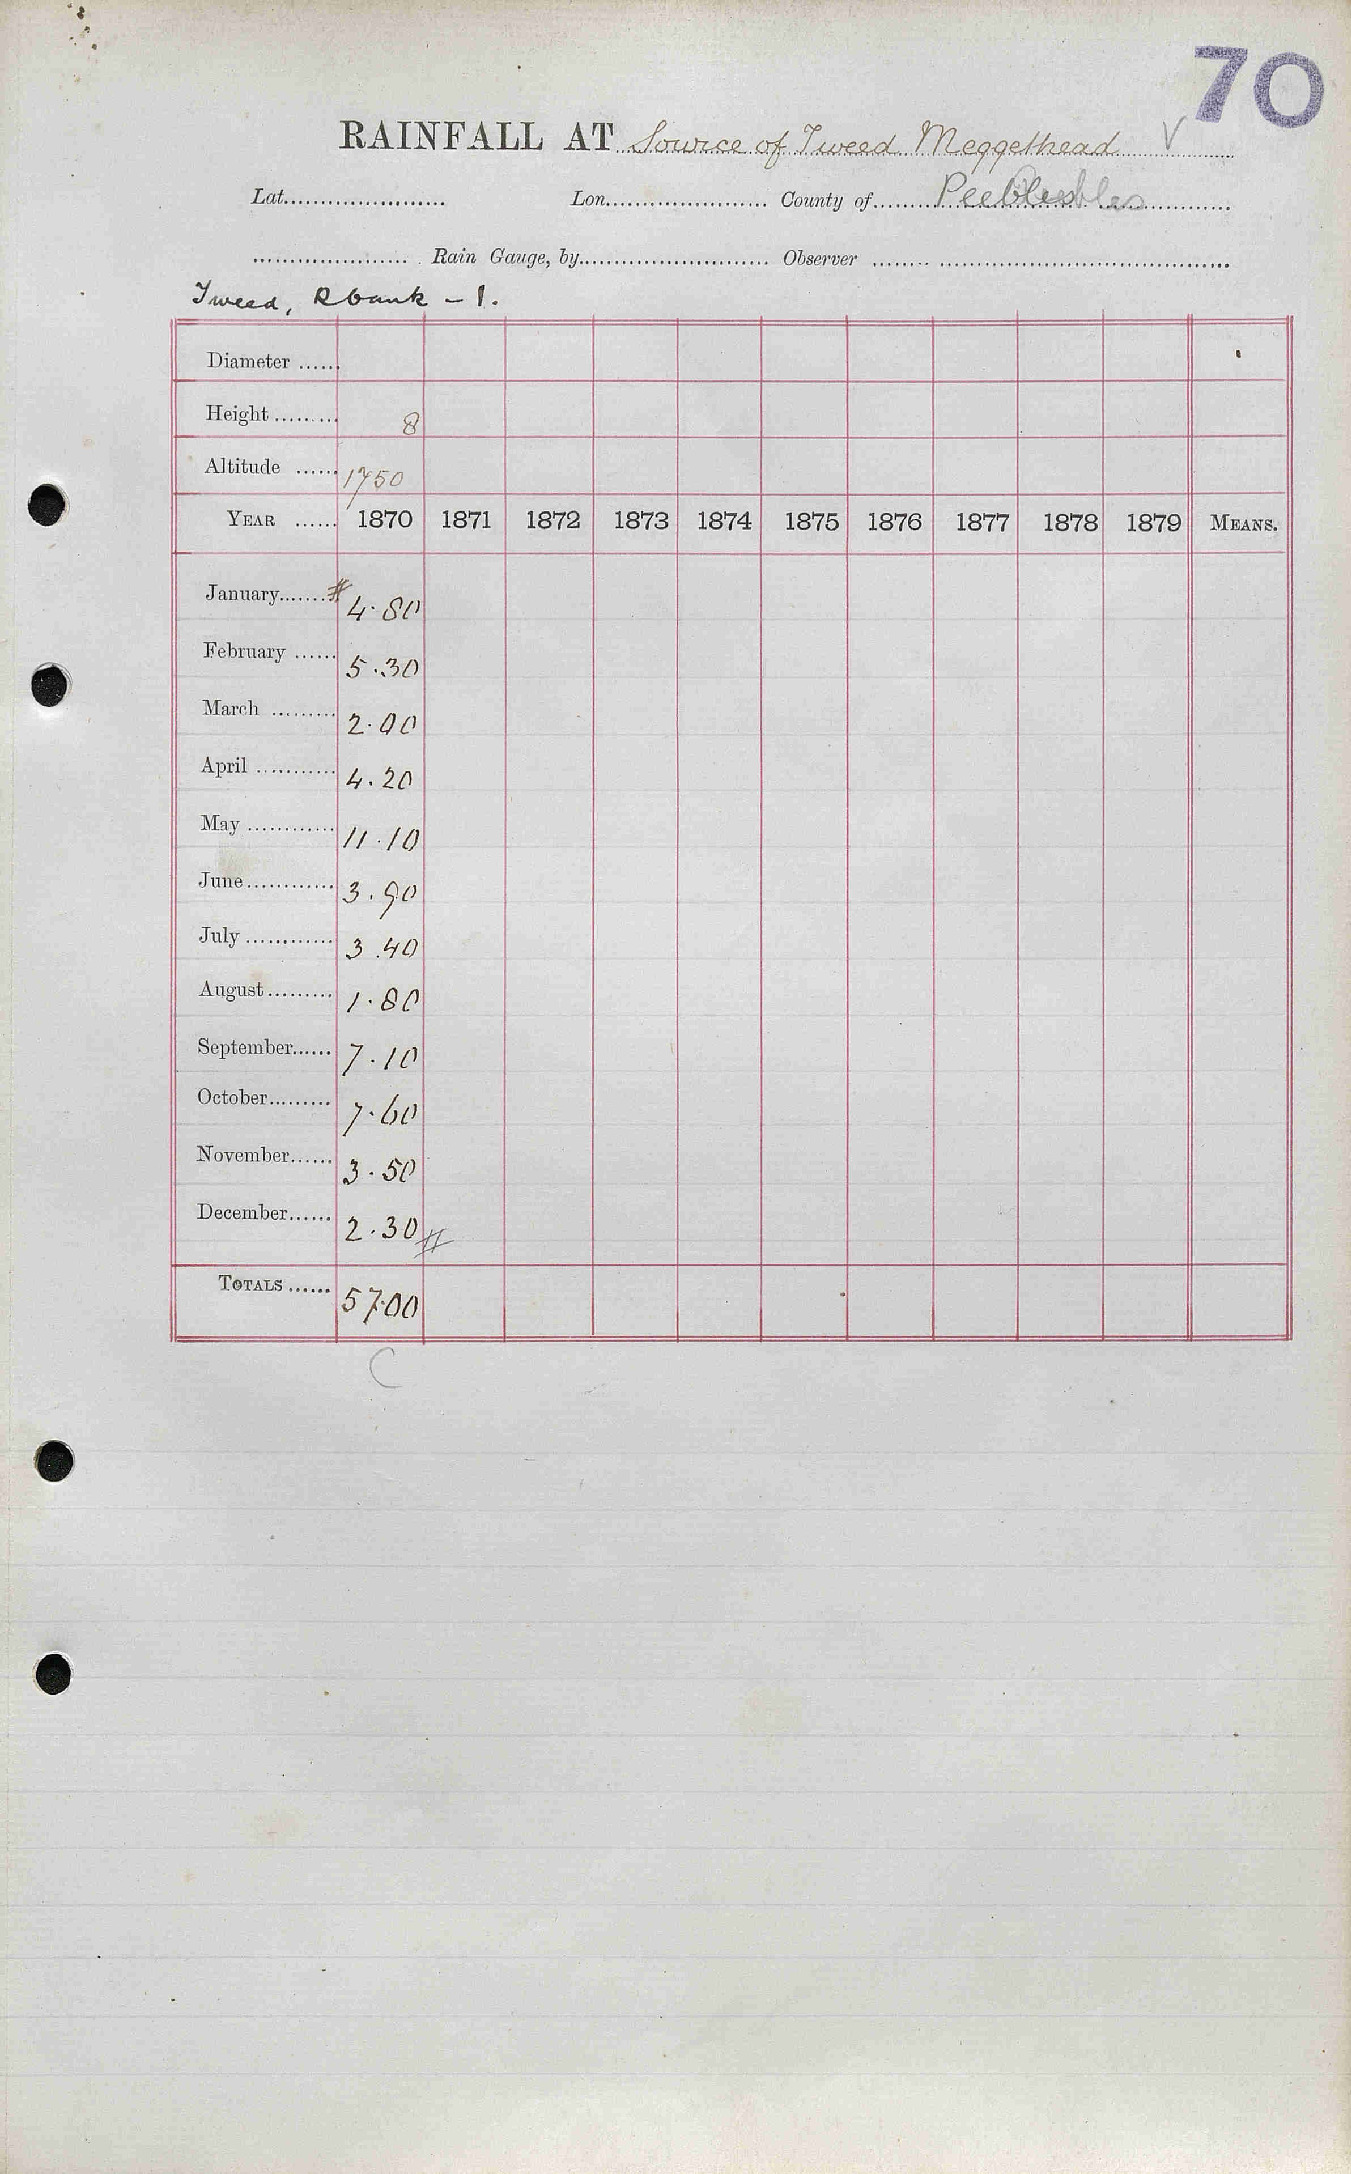 70
RAINFALL AT Source of Tweed Meggethead V
Lat. Lon. County of Peebles
Rain Gauge, by Observer
Tweed, R bank - 1.
Diameter
Height 8
Altitude 1750
YEAR 1870 1871 1872 1873 1874 1875 1876 1877 1878 1879 MEANS.
January # 4.80
February 5.30
March 2.00
April 4.20
May 11.10
June 3.90
July 3.40
August 1.80
September 7.10
October 7.60
November 3.50
December 2.30 #
TOTALS 57.00
C